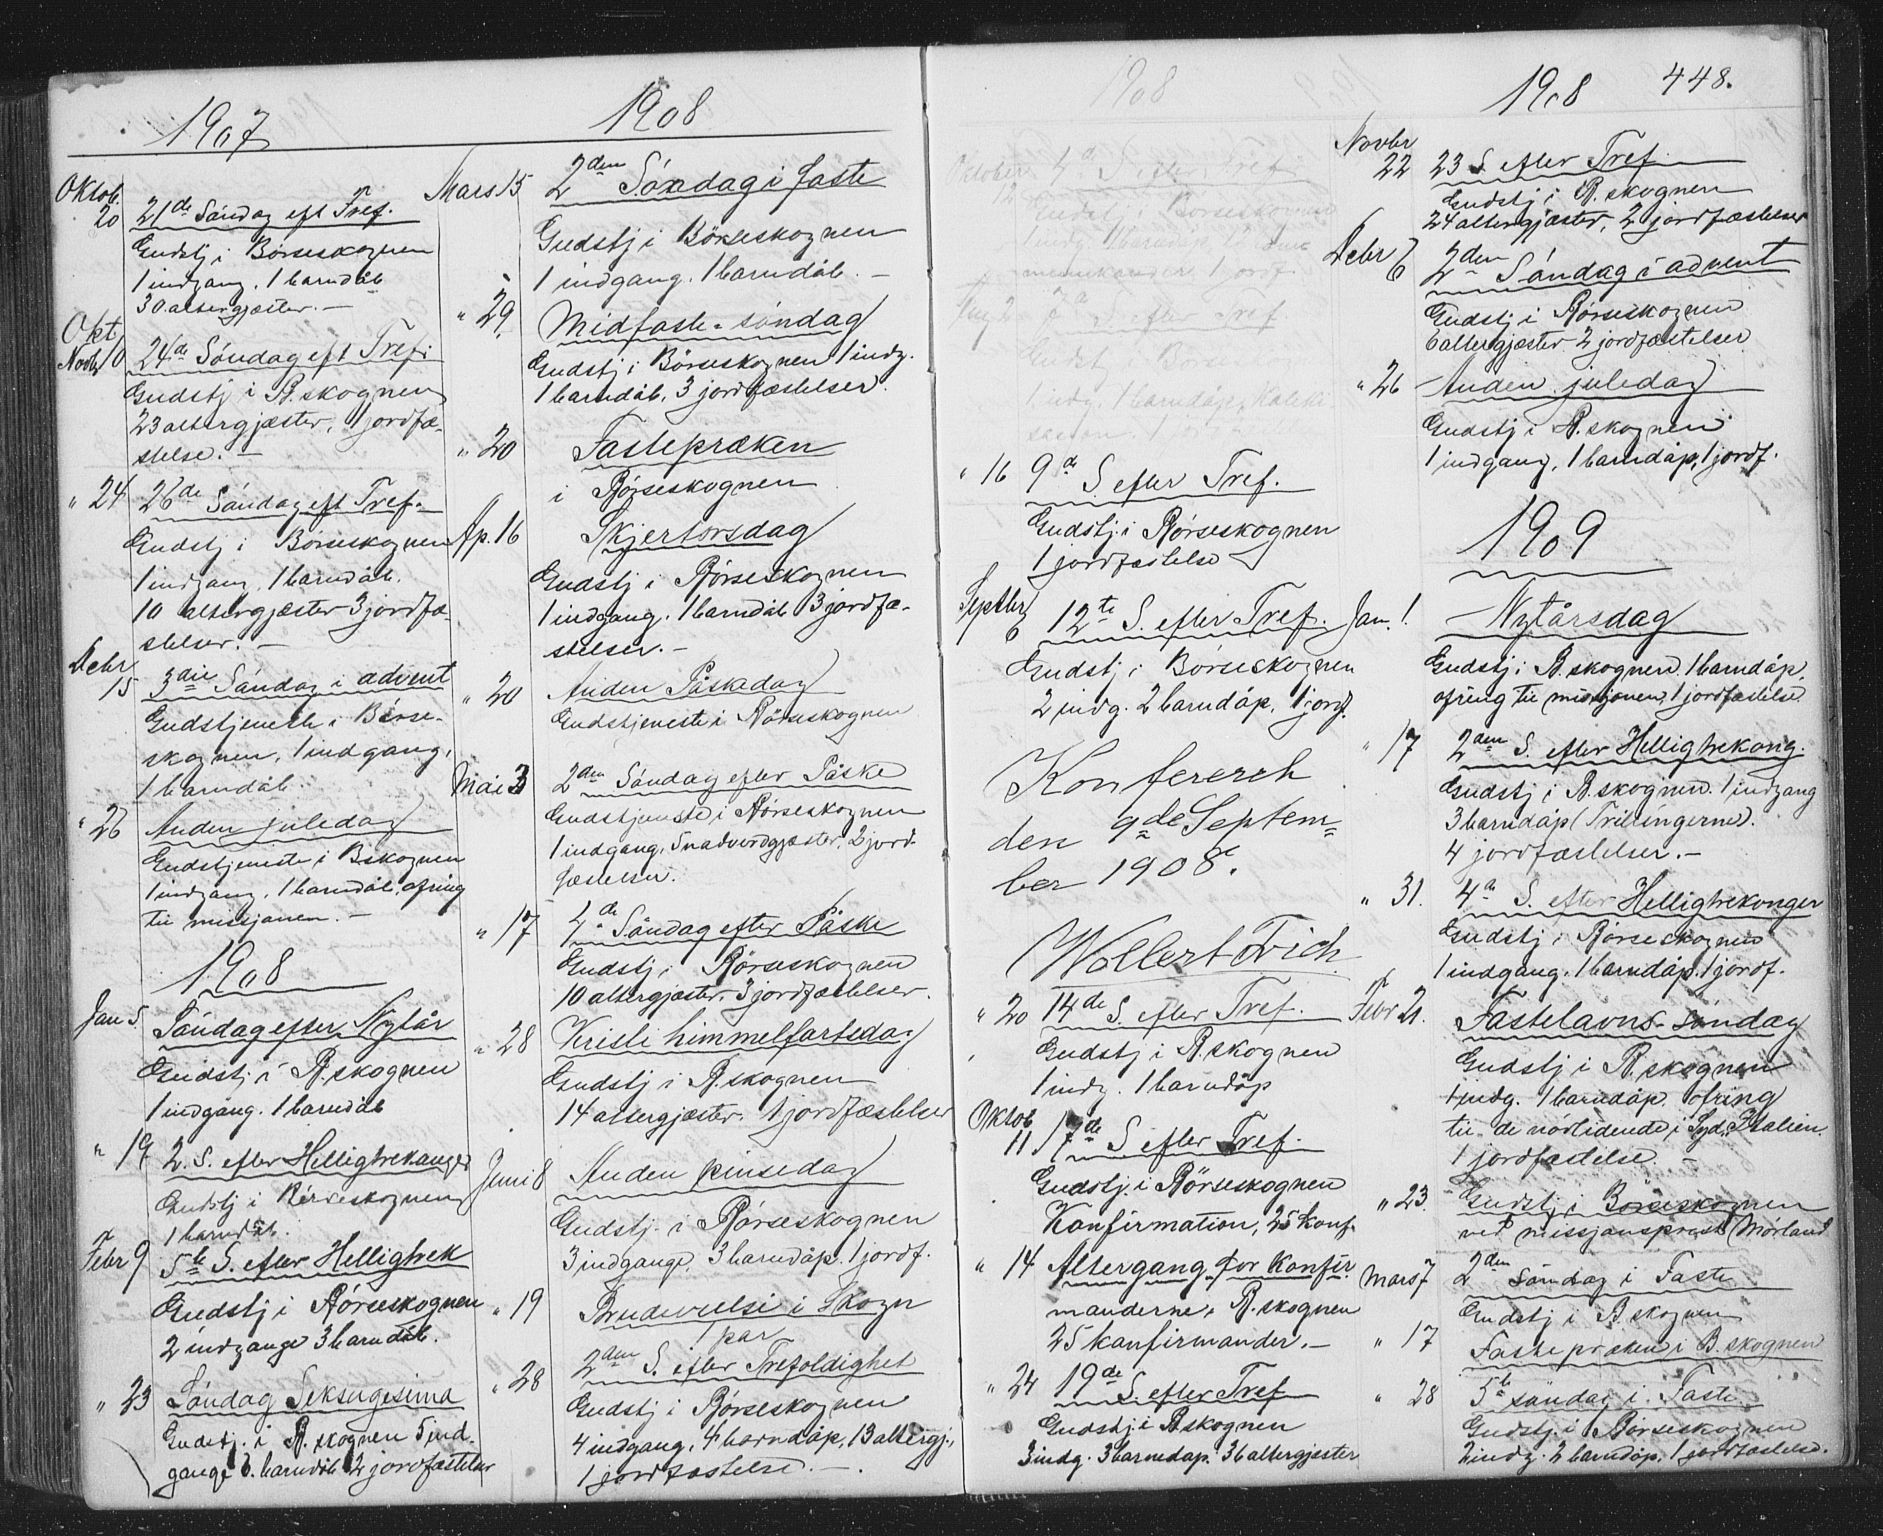 1907
Oktob.
20 21de Søndag eft Tref.
Gudstj i Børseskognen
1 indgang. 1 barndåb
30 altergjæster. —
Okt.
Novbr 10 24de Søndag eft Tref.
Gudstj i B.skognen
23 altergjæster, 1 jordfæ-
stelse. —
" 24 26de Søndag eft Tref.
Gudstj i Børseskognen
1 indgang. 1 barndåb.
10 altergjæster 3 jordfæ-
stelser. —
Decbr
15 3die Søndag i advent
Gudstjeneste i Børse-
skognen, 1 indgang,
1 barndåb.
" 26 Anden juledag
Gudstjeneste i Bskognen
1 indgang, 1 barndåb, ofring
til missjonen. —
1908
Jan 5. Søndag efter Nytår
Gudstj i B.skognen
1 indgang. 1 barndåb
" 19 2. S. efter Hellightrekonger
Gudstj i Børseskognen
1 barndåb.
Febr 9 5te S. efter Hellightrek
Gudstj i Børseskognen
2 indgange 3 barndåb.
" 23 Søndag Seksagesima
Gudstj. i B.skognen 5 ind-
gange 3. barndåb 2 jordfæstelser
1908
Mars 15 2den Søndag i faste
Gudstj i Børseskognen
1 indgang. 1 barndåb. —
" 29. Midfaste-søndag
Gudstj i Børseskognen 1 indg.
1 barndåb, 3 jordfæstelser.
" 20 Fastepræken
i Børseskognen
Ap. 16 Skjertorsdag
Gudstj i Børseskognen
1 indgang. 1 barndåb 3 jordfæ-
stelser. —
" 20 Anden Påskedag
Gudstjeneste i Børseskognen
Mai 3 2den Søndag efter Påske
Gudstjeneste i Børseskognen
1 indgang, 5 nadverdgjæster. 2 jord-
fæstelser.
" 17 4de Søndag efter Påske
Gudstj i Børseskognen
10 altergjæster. 3 jordfæstelser.
" 28 Kristi himmelfartsdag
Gudstj i B.skognen
14 altergjæster. 1 jordfæstelser
Juni 8 Anden pinsedag
Gudstj. i Børseskognen
3 indgange, 3 barndåp, 1 jordf.
" 19 Brudevielse i Skogn
1 par
" 28 2den S. efter Trefoldighet
Gudstj i Børseskognen
4 indgang, 4 barndåp, 13 altergj.,
1 jordfæstelse. —
1908
" 16 9de S. efter Tref.
Gudstj. i Børseskognen
1 jordfæstelse
Septbr
6 12te S. efter Tref.
Gudstj. i Børseskognen
2 indg. 2 barndåp, 1 jordf.
Konferereh
den 9de Septem-
ber 1908.
" 20 14de S. efter Tref.
Gudstj i B.skognen
1 indg. 1 barndåp
Oktob
11 17de S efter Tref.
Gudstj. i Børseskognen
Konfirmation, 25 konf.
" 14 Altergang for konfir-
manderne i B.skognen
25 konfirmander. —
" 24 19de S. efter Tref
Gudstj. i B.skognen
3 indg. 3 barnedåp. 36 altergjester
1908 448.
Novbr
22 23 S. efter Tref.
Gudstj i B.skognen
24 altergjæster, 2 jordfæstelser
Decbr 6 2den Søndag i advent
Gudstj i Børseskognen
6 altergjæster 2 jordfæstelser
" 26 Anden juledag
Gudstj i B.skognen
1 indgang, 1 barndåp, 1 jordf.
1909
Jan. 1. Nytårsdag
Gudstj i B.skognen. 1 barndåp,
ofring til missjonen, 1 jordfæstelse
" 17 2den S. efter Hellightrekong.
Gudstj i B.skognen. 1 indgang
3 barndåp (Trillingerne).
4 jordfæstelser. —
" 31. 4de S. efter Hellightrekonger
Gudstj i Børseskognen
1 indgang. 1 barndåp. 1 jordf.
Febr 21. Fastelavns-søndag
Gudstj i B.skognen
1 indg. 1 barndåp. ofring
til de nødlidende i Syd. Italien.
1 jordfæstelse. —
" 23. Gudstj i Børseskognen
ved missjonsprest Mørland
Mars 7 2den Søndag i Faste
Gudstj i B.skognen
" 17 Fastepræken i B.skognen
" 28 5te søndag i Faste
Gudstj. i Børseskognen
2 indg. 2 barndåp, 1 jordfæstelse.